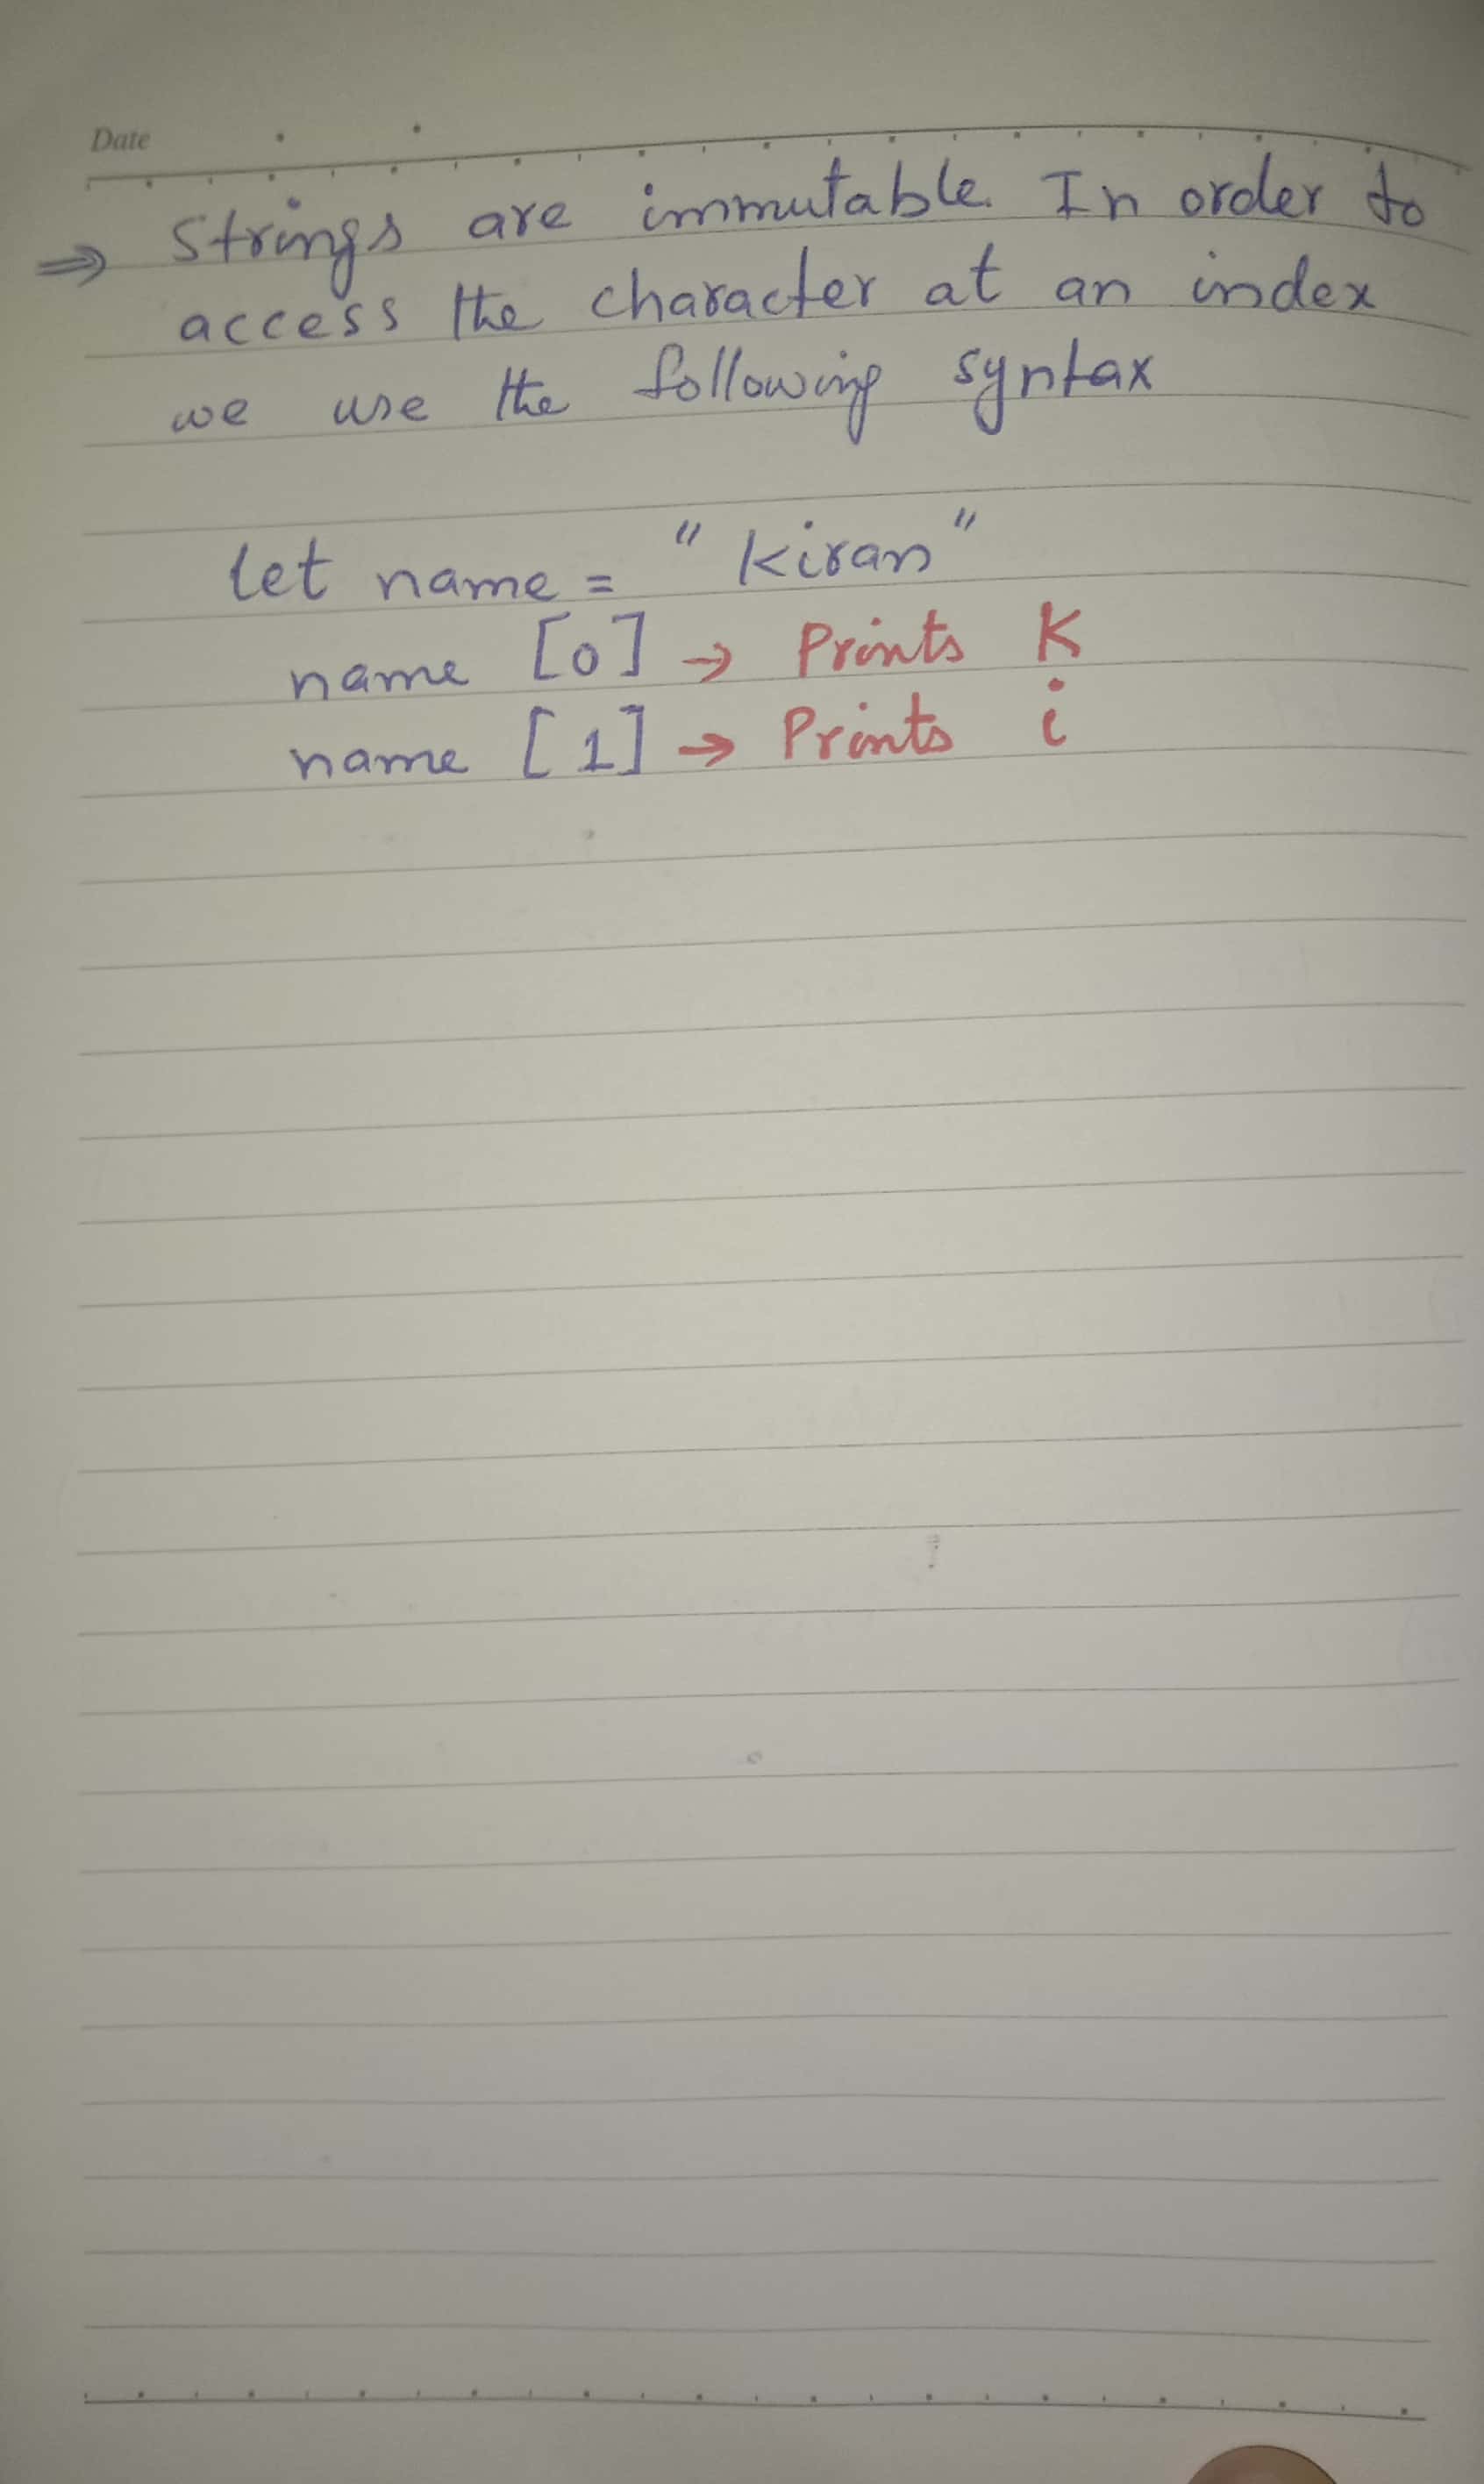 Date
⇒ Strings are immutable. In order to
access the character at an index
we use the following syntax
let name = "Kiran"
name [0] → Prints K
name [1] → Prints i